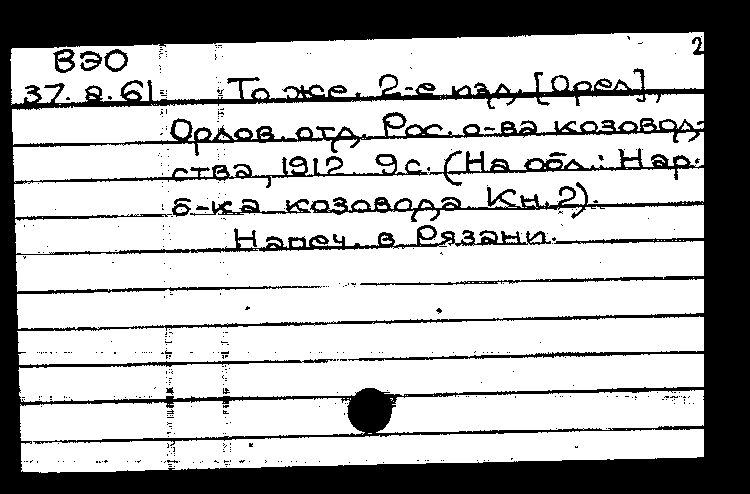 2
ВЭО
37.8.61 То же. 2-е изд. [Орел],
Орлов. отд. Рос. о-ва козовод-
ства, 1912. 9 с. (На обл.: Нар.
б-ка козовода Кн.2).
Напеч. в Рязани.